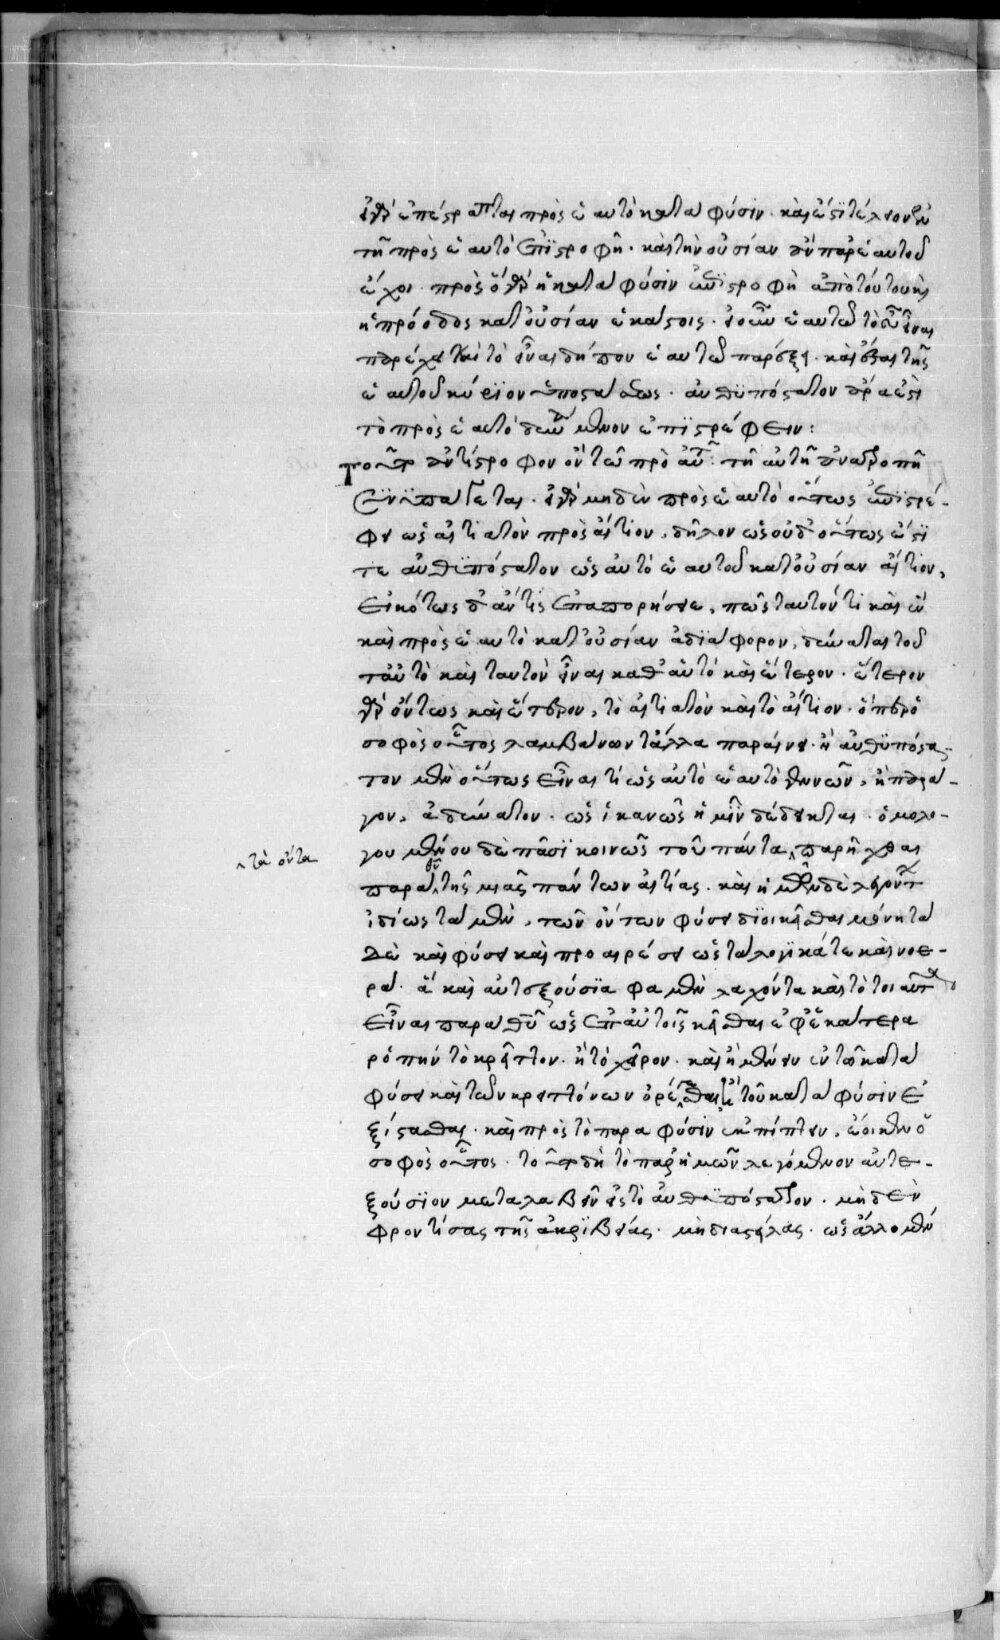 εἰ γὰρ ἐπέστραπται πρὸς ἑαυτὸ κατὰ φύσιν· καὶ ἔστι τέλειον ἐν
τῇ πρὸς ἑαυτὸ ἐπιστροφῇ· καὶ τὴν οὐσίαν ἂν παρ' ἑαυτοῦ
ἔχοι· πρὸς ὃ γὰρ ἡ κατὰ φύσιν ἐπιστροφὴ ἀπὸ τούτου καὶ
ἡ πρόοδος κατ' οὐσίαν ἑκάστοις· εἰ οὖν ἑαυτῷ τὸ εὖ εἶναι
παρέχει καὶ τὸ εἶναι δήπου ἑαυτῷ παρέξει· καὶ ἔσται τῆς
ἑαυτοῦ κύριον ὑποστάσεως· αὐθυπόστατον ἄρα ἐστὶ
τὸ πρὸς ἑαυτὸ δυνάμενον ἐπιστρέφειν:
Τούτῳ ἀντίστροφον ὂν τῷ πρὸ αὐτοῦ τῇ αὐτῇ ἀνατροπῇ
συνυπάγεται· εἰ γὰρ μηδὲν πρὸς ἑαυτὸ οὕτως ἐπιστρέ-
φει ὡς αἰτιατὸν πρὸς αἴτιον, δῆλον ὡς οὐδ' οὕτως ἔστι
τι αὐθυπόστατον ὡς αὐτὸ ἑαυτοῦ κατ' οὐσίαν αἴτιον,
Εἰκότως δ' ἄν τις ἐπαπορήσειε, πῶς ταυτόν τι καὶ ἓν
καὶ πρὸς ἑαυτὸ κατ' οὐσίαν ἀδιάφορον, δύναται τοῦ
τ' αὐτὸ καὶ ταυτὸν εἶναι καθ' αὑτὸ καὶ ἕτερον· ἕτερον
γὰρ ὄντως καὶ ἕτερον, τὸ αἰτιατὸν καὶ τὸ αἴτιον· ὅπερ ὁ
σοφὸς οὗτος λαμβάνων τἄλλα περαίνει· ἢ αὐθυπόστα-
τον μὲν οὕτως εἶναί τι ὡς αὐτὸ ἑαυτὸ γεννῶν, ἢ παρά-
γον, ἀδύνατον· ὡς ἱκανῶς ἡμῖν δέδεικται· ὁμολο-
γουμένου δὲ πᾶσι κοινῶς τοῦ πάντα ‸ παρῆχθαι
‸ τὰ ὄντα
παρὰ θ(εο)ῦ τῆς μιᾶς πάντων αἰτίας· καὶ
ἰδίως τὰ μὲν, τῶν ὄντων φύσει διοικεῖσθαι μόνῃ τὰ
δὲ καὶ φύσει καὶ προαιρέσει ὡς τὰ λογικά τε καὶ νοε-
ρά· ἃ καὶ αὐτεξούσιά φαμεν λαχόντα καὶ τὸ τοιαῦτα
εἶναι παρὰ θ(εο)ῦ ὡς ἐπ' αὐτοῖς κεῖσθαι ἐφ' ἑκάτερα
ῥοπὴν τὸ κρεῖττον· ἢ τὸ χεῖρον· καὶ ἢ μένειν ἐν τῷ κατὰ
φύσιν καὶ τῶν κρειττόνων ὀρέγεσθαι ἢ τοῦ κατὰ φύσιν ἐ-
ξίστασθαι· καὶ πρὸς τὸ παρὰ φύσιν ἐκπίπτειν, ἔοικεν ὁ
σοφὸς οὗτος· τοῦτο δὴ τὸ παρ' ἡμῶν λεγόμενον αὐτε-
ξούσιον μεταλαβεῖν εἰς τὸ αὐθυπόστατον· μηδὲν
φροντίσας τῆς ἀκριβείας· μὴ διαστείλας· ὡς ἄλλο μέν